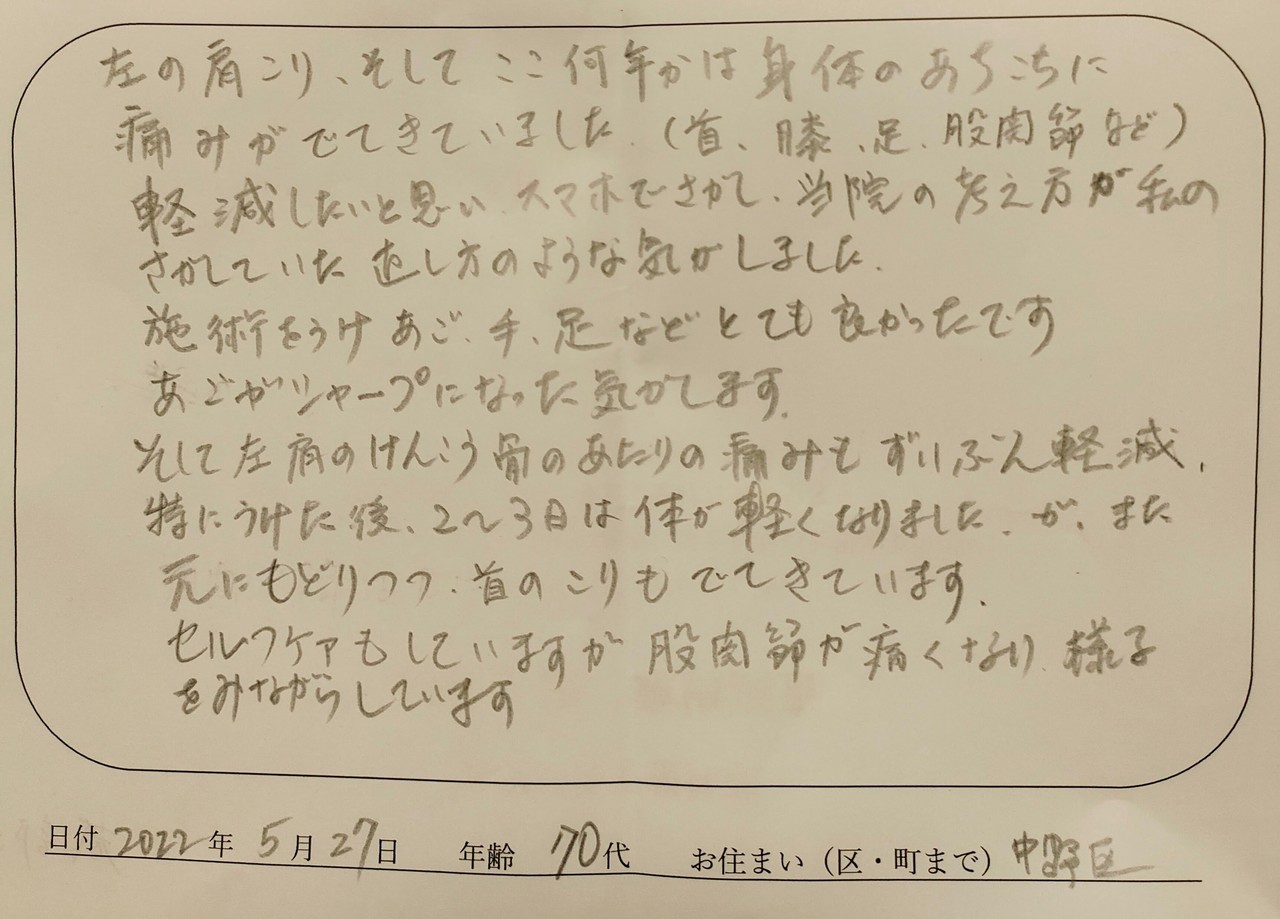 左の肩こり、そしてここ何年かは身体のあちこちに
痛みがでてきていました。(首、膝、足、股関節など)
軽減したいと思い、スマホでさがし、当院の考え方が私の
さがしていた直し方のような気がしました。
施術をうけあご、手、足などとても良かったです
あごがシャープになった気がします。
そして左肩のけんこう骨のあたりの痛みもずいぶん軽減、
特にうけた後、2〜3日は体が軽くなりました、が、また
元にもどりつつ、首のこりもでてきています。
セルフケアもしていますが股関節が痛くなり、様子
をみながらしています
日付 2022年 5月27日 年齢 70代 お住まい(区・町まで) 中野区